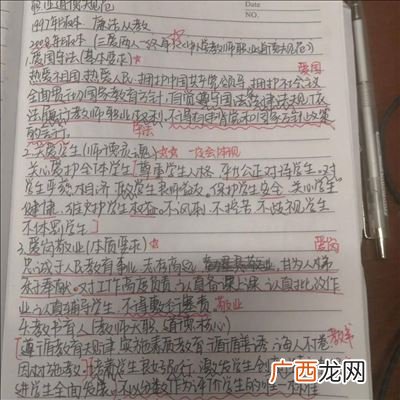 职业道德规范
DATE
NO.
1997年版本 廉洁从教
2008年版本(三爱两人一终身)《中小学教师职业道德规范》
1.爱国守法(基本要求)
爱国
热爱祖国,热爱人民,拥护中国共产党领导,拥护社会主义
全面贯彻国家教育方针,自觉遵守国家法律法规,依
法履行教师职业权利,不得有违背党和国家方针政策
的言行。
守法
2.关爱学生(师德灵魂) 一定会体现
关心爱护全体学生,尊重学生人格,平等公正对待学生。对
学生严慈相济,做学生良师益友,保护学生安全,关心学生
健康,维护学生权益。不讽刺、不挖苦、不歧视学生
不体罚学生
3.爱岗敬业(本质要求)
爱岗
忠诚于人民教育事业,志存高远,勤恳敬业,甘为人梯
乐于奉献。对工作高度负责,认真备课上课,认真批改作
业,认真辅导学生,不得敷衍塞责。
敬业
4.教书育人(教师天职、道德核心)
遵循教育规律,实施素质教育,循循善诱,诲人不倦
教书
因材施教,培养学生良好品行,激发学生创新精神,促
进学生全面发展。不以分数作为评价学生的唯一标准
广西龙网